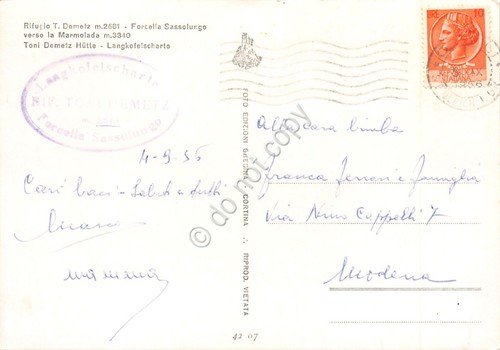 Rifugio T. Demetz m.2681 - Forcella Sassolungo
verso la Marmolada m.3340
Toni Demetz Hütte - Langkofelscharte
Langkofelscharte
RIF. TONI DEMETZ
Forcella Sassolungo
4-9-56
Cari baci - Saluti a tutti
mamma
FOTO EDIZIONI GHEDINA - CORTINA ∴ RIPROD. VIETATA
42 07
10
Alla cara bimba
Franca Ferrari e famiglia
Via Nino Cappelli 7
Modena
do not copy